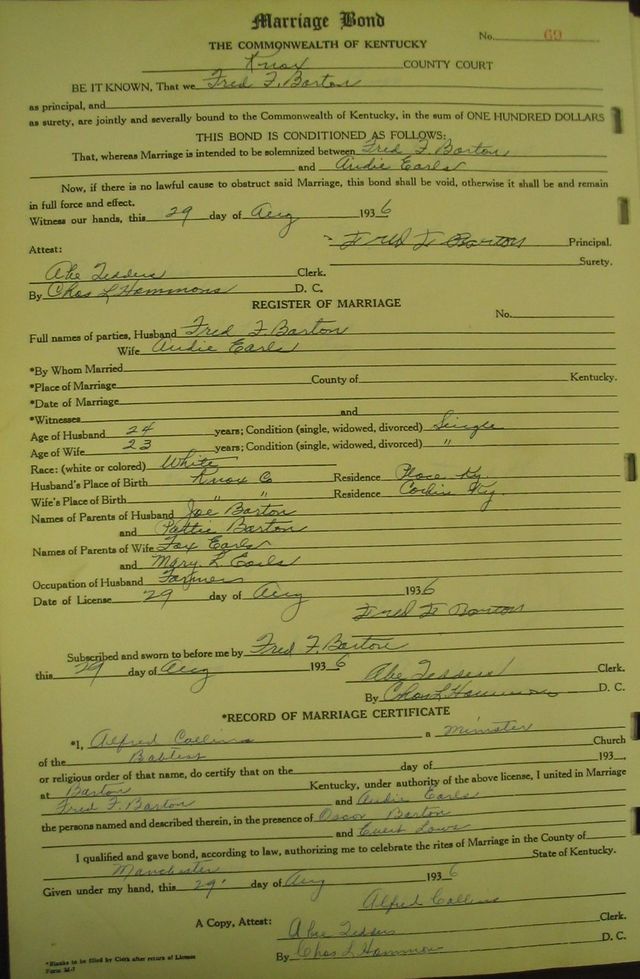 Marriage Bond
No. 69
THE COMMONWEALTH OF KENTUCKY
Knox COUNTY COURT
BE IT KNOWN, That we Fred F. Barton
as principal, and
as surety, are jointly and severally bound to the Commonwealth of Kentucky, in the sum of ONE HUNDRED DOLLARS
THIS BOND IS CONDITIONED AS FOLLOWS:
That, whereas Marriage is intended to be solemnized between Fred F. Barton
and Audie Earls
Now, if there is no lawful cause to obstruct said Marriage, this bond shall be void, otherwise it shall be and remain
in full force and effect.
Witness our hands, this 29 day of Aug 1936
Fred F Barton Principal.
Attest: Surety.
Abe Tedders Clerk.
By Chas L Hammons D. C.
REGISTER OF MARRIAGE
No.
Full names of parties, Husband Fred F. Barton
Wife Audie Earls
*By Whom Married
*Place of Marriage County of Kentucky.
*Date of Marriage
*Witnesses and
Age of Husband 24 years; Condition (single, widowed, divorced) Single
Age of Wife 23 years; Condition (single, widowed, divorced) "
Race: (white or colored) White
Husband's Place of Birth Knox Co Residence Place Ky
Wife's Place of Birth " " Residence Corbin Ky
Names of Parents of Husband Joe Barton
and Pattie Barton
Names of Parents of Wife Fox Earls
and Mary L Earls
Occupation of Husband Farmer
Date of License 29 day of Aug 1936
Fred F Barton
Subscribed and sworn to before me by Fred F. Barton
this 29 day of Aug 1936 Abe Tedders Clerk.
By Chas L Hammons D. C.
*RECORD OF MARRIAGE CERTIFICATE
*I, Alfred Collins a Minister
of the Babtist Church
or religious order of that name, do certify that on the day of 193
at Barton Kentucky, under authority of the above license, I united in Marriage
Fred F. Barton and Audie Earls
the persons named and described therein, in the presence of Oscar Barton
and
I qualified and gave bond, according to law, authorizing me to celebrate the rites of Marriage in the County of
Manchester State of Kentucky.
Given under my hand, this 29 day of Aug 1936
Alfred Collins
A Copy, Attest: Abe Tedders Clerk.
By Chas L Hammons D. C.
*Blanks to be filled by Clerk after return of License
Form M-7